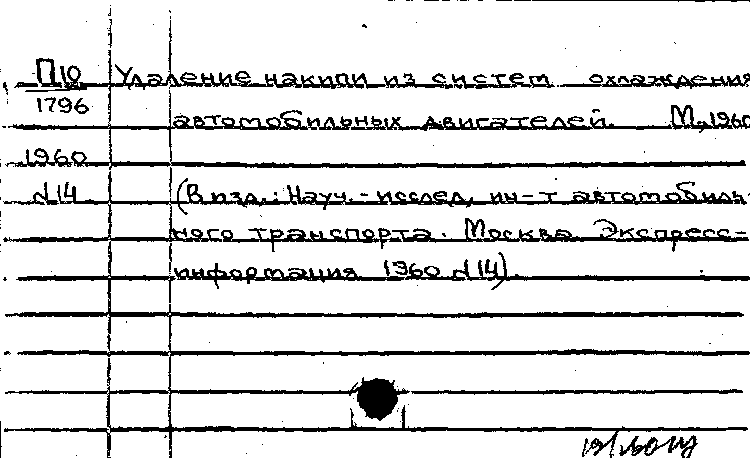 П10 Удаление накипи из систем охлаждения
1796
автомобильных двигателей. М., 1960
1960
№14. (В изд.: Науч.-исслед. ин-т автомобиль-
ного транспорта. Москва Экспресс-
информация 1960 №14).